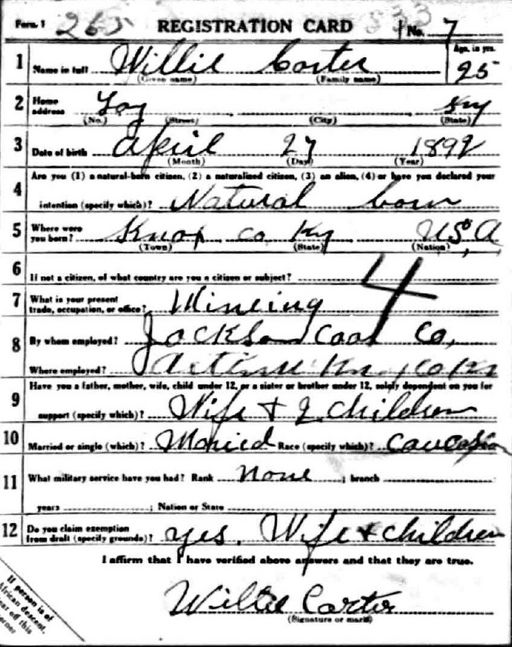 Form 1 265 REGISTRATION CARD No. 7
1 Name in full Willie Carter Age, in yrs. 25
(Given name) (Family name)
2 Home address Loy Ky
(No.) (Street) (City) (State)
3 Date of birth April 27 1892
(Month) (Day) (Year)
Are you (1) a natural-born citizen, (2) a naturalized citizen, (3) an alien, (4) or have you declared your
4 intention (specify which)? Natural born
5 Where were you born? Knox co Ky USA
(Town) (State) (Nation)
6 If not a citizen, of what country are you a citizen or subject?
4
7 What is your present trade, occupation, or office? Mineing
8 By whom employed? Jackson Coal Co,
Where employed? Knox co Ky
Have you a father, mother, wife, child under 12, or a sister or brother under 12, solely dependent on you for
9 support (specify which)? Wife + 2 children
10 Married or single (which)? Maried Race (specify which)? Caucasian
11 What military service have you had? Rank none ; branch
years ; Nation or State
12 Do you claim exemption from draft (specify grounds)? yes. Wife + children
I affirm that I have verified above answers and that they are true.
Willie Carter
(Signature or mark)
If person is of
African descent,
tear off this
corner